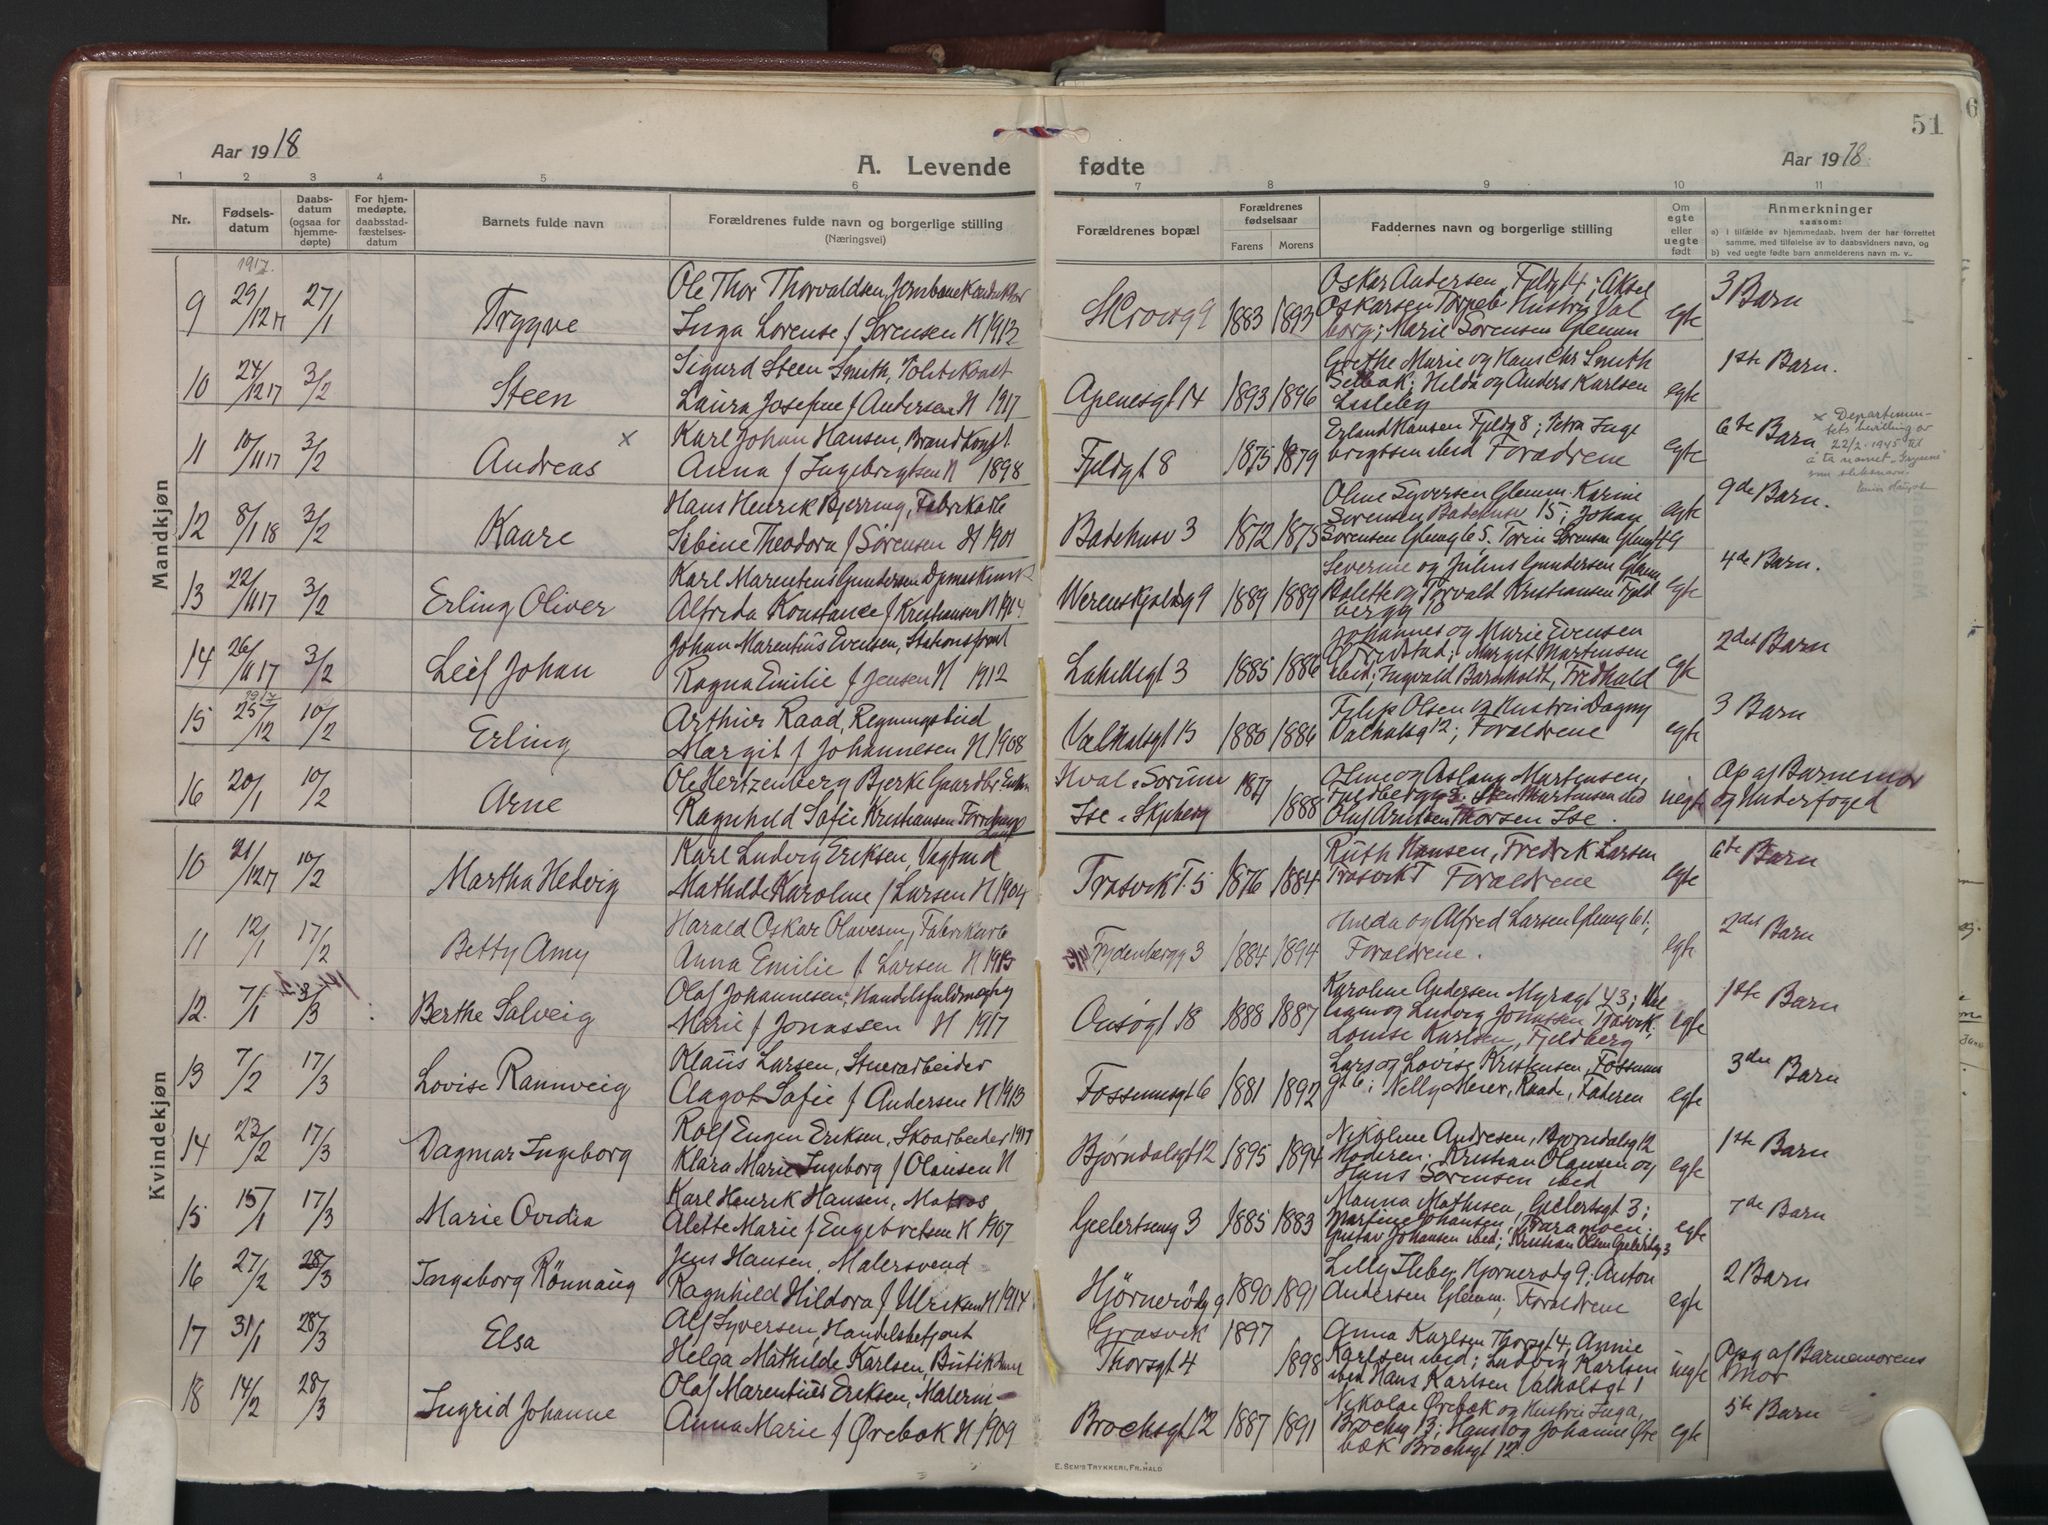 51
6
Aar 1918
A. Levende fødte
Aar 1918
1 2 3 4 5 6 7 8 9 10 11
Nr.
Fødsels-
datum
Daabs-
datum
(ogsaa for
hjemme-
døpte)
For hjem-
medøpte,
daabsstad-
fæstelses-
datum
Barnets fulde navn
Forældrenes fulde navn og borgerlige stilling
(Næringsvei)
Forældrenes bopæl
Forældrenes
fødselsaar
Farens Morens
Faddernes navn og borgerlige stilling
Om
egte
eller
uegte
født
Anmerkninger
saasom:
a) i tilfælde av hjemmedaab, hvem der har forrettet
samme, med tilføielse av to daabsvidners navn, og
b) ved uegte fødte barn anmelderens navn m. v..
Mandkjøn
1917.
9 29/12 17 27/1 Trygve
Ole Thor Thorvaldsen, Jernbanekonduktør
Inga Lorense f Sørensen N 1912
1883 1893
Oskar Andersen, Fjeldgt 4; Aksel
Oskarsen Torpeb. Hustru Val
borg; Marie Sørensen Glemm
egte 3 Barn
10 24/12 17 3/2 Steen
Sigurd Steen Smith, Politikonst
Laura Josefine f Andersen N 1917
Apenesgt 14 1893 1896
Grethe Marie og Hans Chr Smith
Selbak; Hilda og Anders Karlsen
Lisleby
egte 1ste Barn.
11 10/11 17 3/2 Andreas x
Karl Johan Hansen, Brandkonst.
Anna f Ingebrigtsen N 1898
Fjeldgt 8 1875 1879
Erland Hansen Fjeldg 8; Petra Inge
brigtsen ibid Forældrene
egte 6te Barn
x Departemen-
tets bevilling av
22/2. 1945 til
å ta namet
som slektsnavn.
12 8/1 18 3/2 Kaare
Hans Henrik Bjerring, Fabrikarb
Sebine Theodora f Sørensen N 1901
Badehusv 3 1872 1875
Oline Syversen Glemm. Karine
Sørensen Badehusv 15; Johan
Sørensen Glemg 65.
egte 9de Barn.
13 22/11 17 3/2 Erling Oliver
Karl Marentius Gundersen
Alfrida Konstance f Kristiansen N 1914.
Werenskjoldg 9 1889 1889
Severine og Julius Gundersen Glem
Valette og Torvald Kristiansen Fjeld
bergg 10
egte 4de Barn.
14 26/11 17 3/2 Leif Johan
Johan Marentius Evensen,
Ragna Emilie f Jensen N 1912
Lahellegt 3 1885 1886
Johannes og Marie Evensen
Fredstad; Margit Martensen
ibid; Ingvald Barnholdt, Fredhald
egte 2det Barn
1917
15 25/12 10/2 Erling
Arthur Raad, Regningsbud
Margit f Johannesen N 1908
Valhalsgt 15 1880 1886
Filip Olsen og Hustru Dagny
Valhalsg 12; Forældrene
egte 3 Barn
16 20/1 10/2 Arne
Ole Hertzenberg Bjerke Gaardbr.
Ragnhild Sofie Kristiansen
Hval i Sørum 1877
Ise i Skjeberg 1888
Oline og Aslaug Martensen,
Fjeldbergg 3; Sten Martensen ibid
Oluf Arntsen Thorsen Ise.
uegte Op af Barnemor
og Underfoged
Kvindekjøn
10 21/12 17 10/2 Martha Hedvig
Karl Ludvig Eriksen, Vagtmd
Mathilde Karoline f Larsen N 1904
Trosvik T. 5 1876 1884
Ruth Hansen, Fredrik Larsen
Trosvik T Forældrene
egte 6te Barn
11 12/1 17/2 Betty Amy
Harald Oskar Olavesen, Fabrikarb
Anna Emilie f Larsen N 1913
Frydenbergg 3 1884 1894
Hulda og Alfred Larsen Glemg 61;
Forældrene.
egte 2det Barn
12. 7/1 3/3 Berthe Salveig
Olaf Johannesen, Handelsfuldmegtig
Marie f Jonassen N 1917
Onsøgt 18 1888 1887
Karoline Andersen Myragt 43;
Ludvig Jonassen Trosvik.
Louise Karlsen, Fjeldberg
egte 1ste Barn
13 7/2 17/3 Lovise Rannveig
Klaus Larsen, Stenarbeider
Aagot Sofie f Andersen N 1913
Fossumsgt 6 1881 1892
Lars og Lovise Kristensen, Fossums
gt 6; Nelly Meier, Raade, Faderen
egte 3die Barn
14 23/2 17/3 Dagmar Ingeborg
Rolf Eugen Eriksen, Skoarbeider 1917
Klara Marie Ingeborg f Olausen N
Bjørndalsgt 12 1895 1894
Nikoline Andresen, Bjørndalsg 12
Moderen; Kristian Olausen og
Hans Sørensen ibid
egte 1ste Barn
15 15/1 17/3 Marie Ovidia
Karl Henrik Hansen, Matros
Alette Marie f Engebretsen N 1907
Geelertsensg 3 1885 1883
Manna Mathisen, Geelertsgt 3;
Martine Johansen,
Gustav Johansen ibid; Kristian Olsen Geelertsg 3
egte 7de Barn
16 27/2 28/3 Ingeborg Rönnaug
Jens Hansen, Malersvend
Ragnhild Hildora f Ulriksen N 1914
Hjørnerødg 9 1890 1891
Lilly Hjørnerødg 9; Anton
Andersen Glemm; Forældrene
egte 2 Barn
17 31/1 28/3 Elsa
Alf Syversen, Handelsbetjent
Helga Mathilde Karlsen, Butikdame
Gräsvik 1897
Thorsgt 4 1898
Anna Karlsen Thorsgt 4, Annie
Karlsen ibid; Ludvig Karlsen
ibid Hans Karlsen Valhalsgt 1
uegte Opg af Barnemorens
Mor
18 14/2 28/3 Ingrid Johanne
Olaf Marentius Eriksen, Malerm
Anna Marie f Ørebæk N 1909
Brochsgt 12 1887 1891
Nikolai Ørebæk og Hustru Inga,
Brochsg 13; Hans og Johanne Øre
bæk Brochsgt 12.
egte 5te Barn
E. SEM'S TRYKKERI, FR.HALD